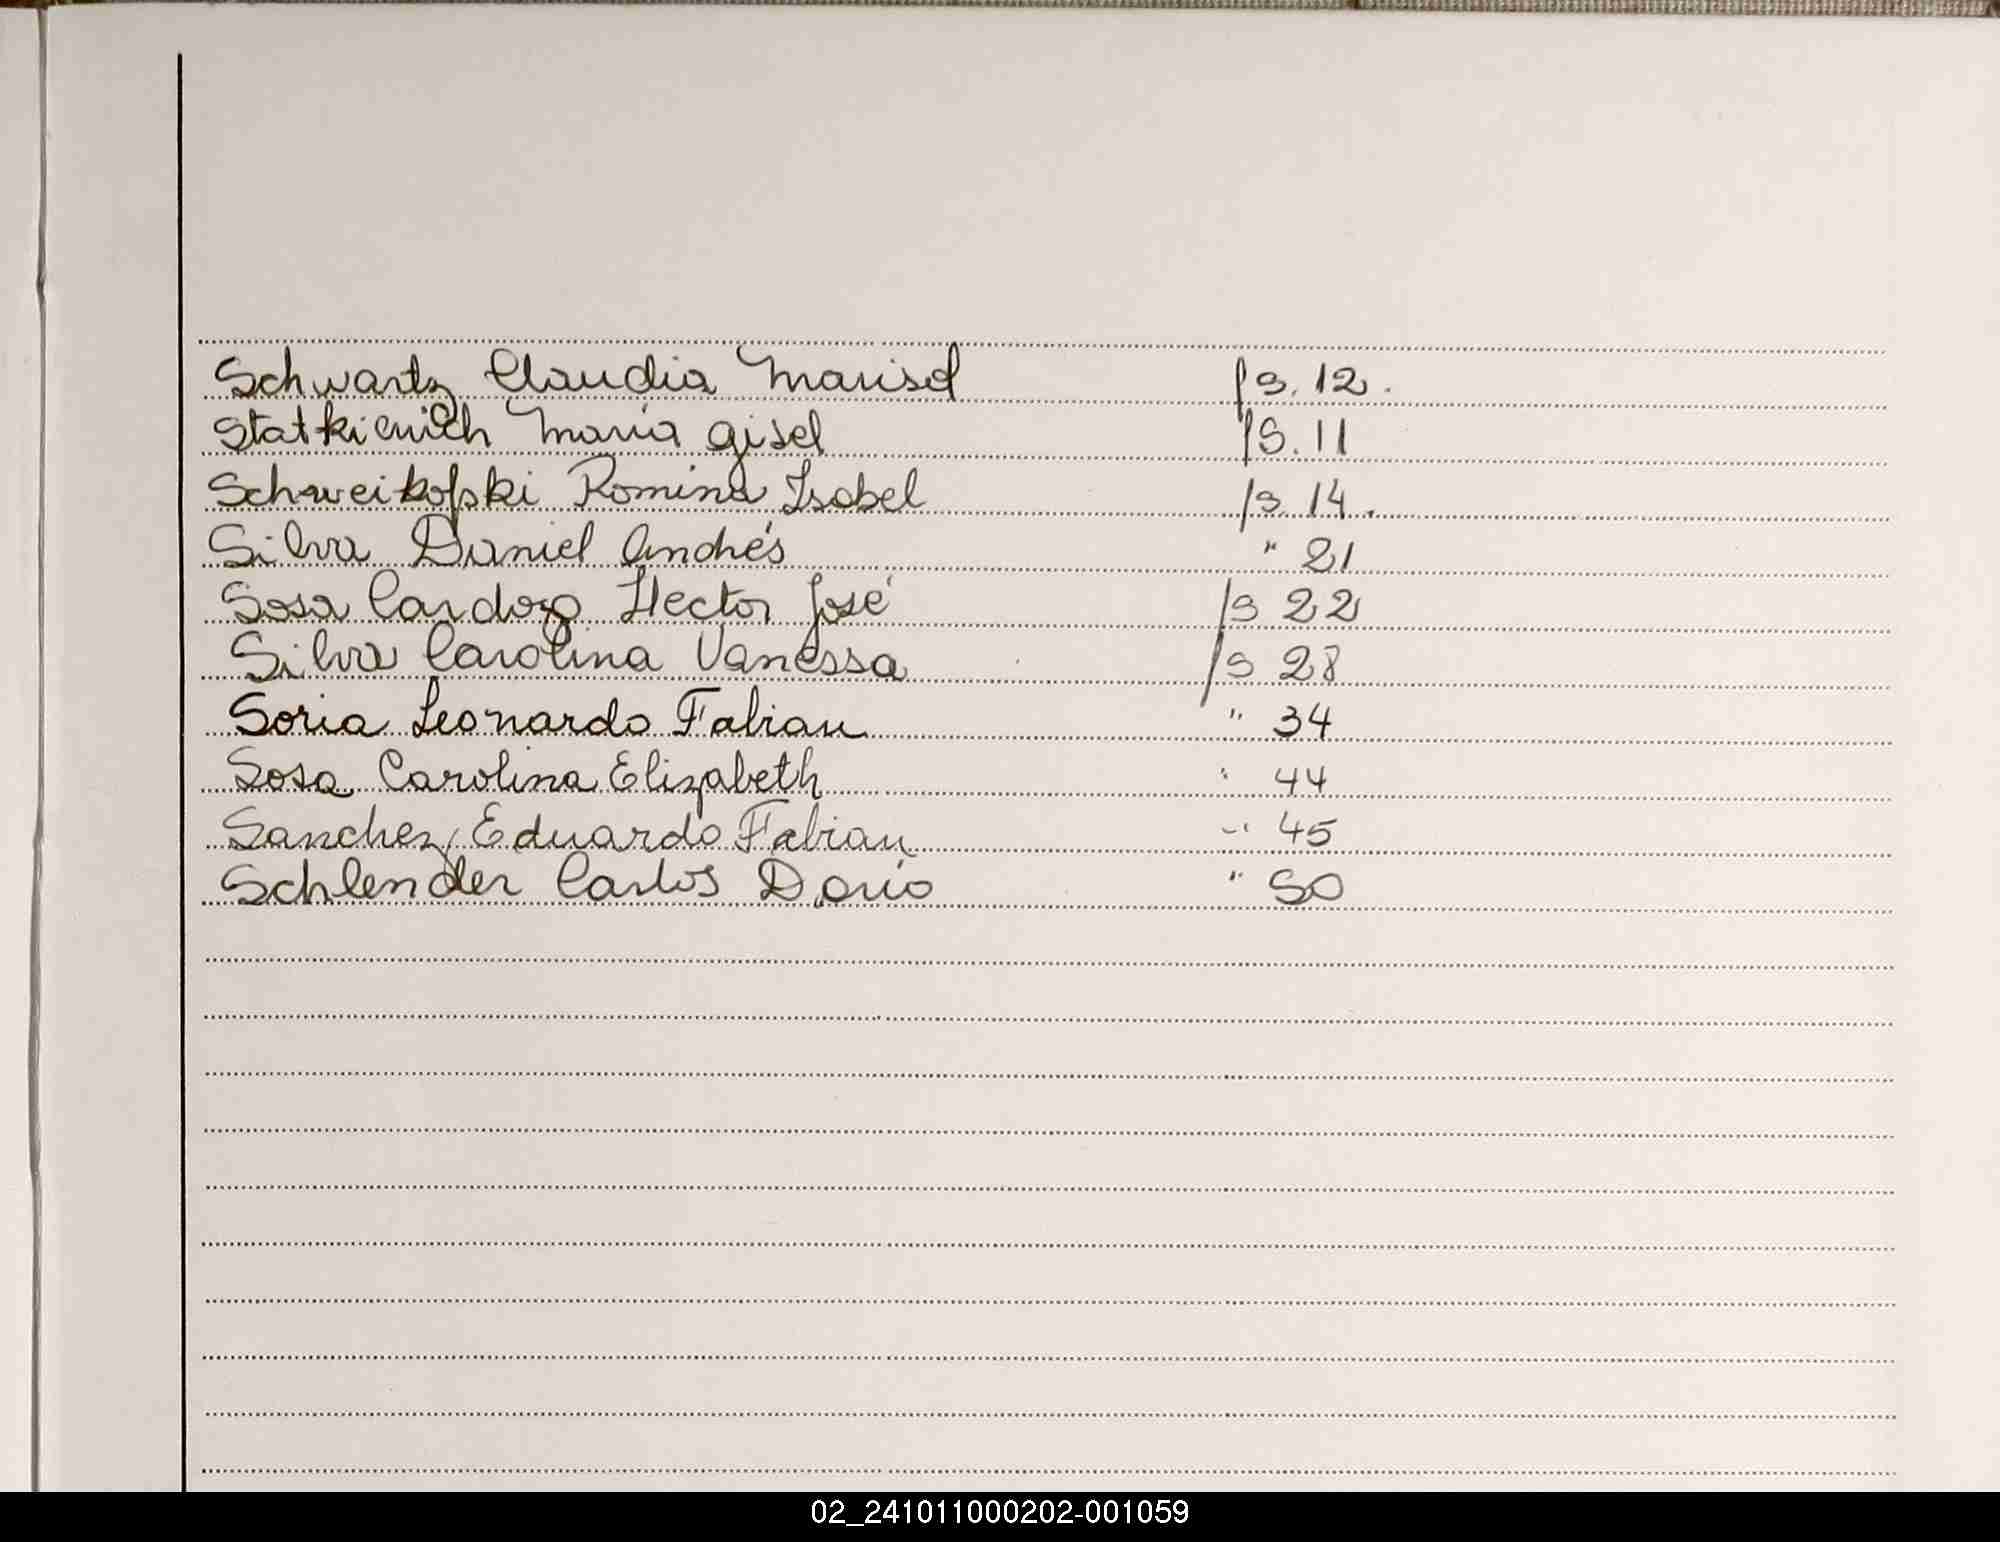 Schwartz Claudia Marisol fs. 12.
Statkievich Maria Gisel fs. 11
Schweikofski Romina Isabel fs 14.
Silva Daniel Andrés " 21
Sosa Cardozo Hector José fs 22
Silva Carolina Vanessa fs 28
Soria Leonardo Fabian " 34
Sosa Carolina Elizabeth " 44
Sanchez, Eduardo Fabian " 45
Schlender Carlos Dario " 50
02_241011000202-001059